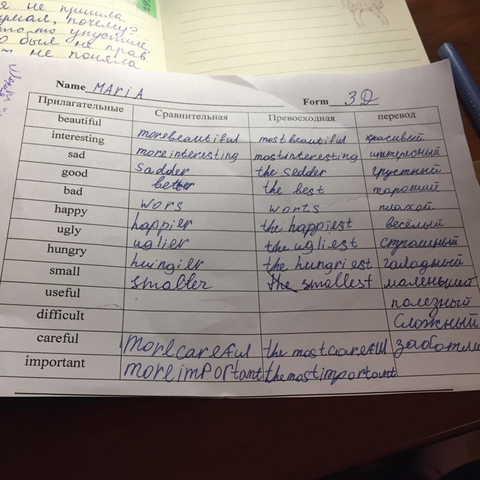 я не пришла.
почему?
упустил
был не прав
не поняла
Name MARIA Form 3D
Прилагательные Сравнительная Превосходная перевод
beautiful morebeautiful mostbeautiful красивый
interesting moreinteresting mostinteresting
sad sadder the sedder грустный
good better the best хороший
bad wors worts плохой
happy happier the happiest весёлый
ugly uglier the ugliest страшный
hungry huingier the hungriest галадный
small smaller the smallest маленький
useful полезный
difficult сложный
careful morecareful the mostcareful
important moreimportant themostimportant